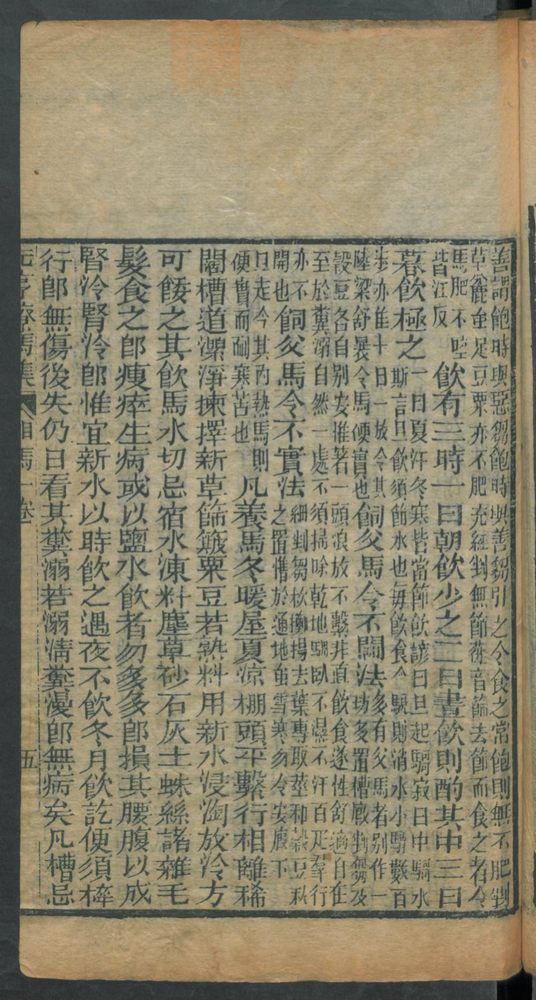 善謂飽時與惡芻飽時與善芻引之令食之常飽則無不肥剉
草麄雖足豆粟亦不肥充細剉無節簁音篩去節而食之者令
馬肥不啌
皆江反
飲有三時一曰朝飲少之二曰晝飲則酌其中三曰
暮飲極之
一曰夏汗冬寒皆當節飲諺曰旦起騎穀日中騎水
斯言旦飲須節水也每飲食令驟則消水小驟數百
步亦佳十日一放令其
陸梁舒展令馬硬實也
飼父馬令不鬭法
多有父馬者别作一
坊多置槽廐剉芻及
穀豆各自别安惟著一頭浪放不繫非直飲食遂性舒適自在
至於糞溺自然一處不須掃除乾地眠卧不濕不汗百疋羣行
亦不
鬭也
飼父馬令不實法
細剉芻杴擲揚去葉專取莖和穀豆秣
之置槽於逈地雖雪寒勿令安廐下
一日一走令其肉熱馬則
便實而耐寒苦也
凡養馬冬暖屋夏凉棚頭平繫行相離稀
闊槽道潔淨揀擇新草篩簸粟豆若熟料用新水浸淘放冷方
可餧之其飲馬水切忌宿水凍料塵草砂石灰土蛛絲諸雜毛
髮食之卽瘦瘁生病或以鹽水飲者勿多多卽損其腰腹以成
腎冷腎冷卽惟宜新水以時飲之遇夜不飲冬月飲訖便須
行卽無傷後失仍日看其糞溺若溺清糞漫卽無病矣凡槽忌
元亨療馬集 相馬一卷 五